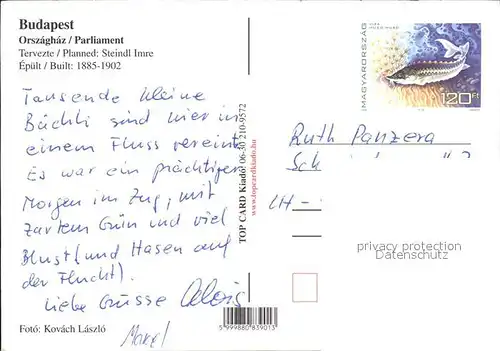 Budapest
Országház / Parliament
Tervezte / Planned: Steindl Imre
Épült / Built: 1885-1902
Tausende kleine
Bächli sind hier in
einem Fluss vereint.
Es war ein prächtiger
Morgen im Zug, mit
zartem Grün und viel
Blust (und Hasen auf
der Flucht).
Liebe Grüsse Alois
Marcel
Fotó: Kovách László
TOP CARD Kiadó 06-30/210-9572
www.topcardkiado.hu
5 999880 839013
MAGYARORSZÁG
120 Ft
Ruth Panzera
Sch
CH-
privacy protection
Datenschutz